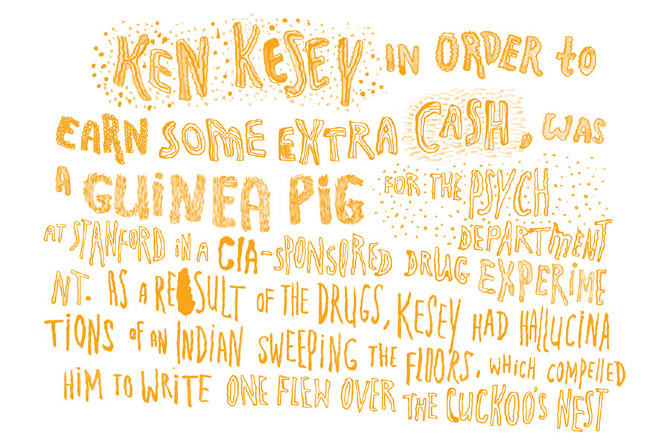 KEN KESEY IN ORDER to
EARN SOME EXTRA CASH, WAS
A GUINEA PIG FOR THE PSYCH
DEPARTMENT
AT STANFORD IN A CIA-SPONSORED DRUG EXPERIME
NT. AS A RESULT OF THE DRUGS, KESEY HAD HALLUCINA
TIONS OF AN INDIAN SWEEPING THE FLOORS, WHICH COMPELLED
HIM TO WRITE ONE FLEW OVER THE CUCKOO'S NEST